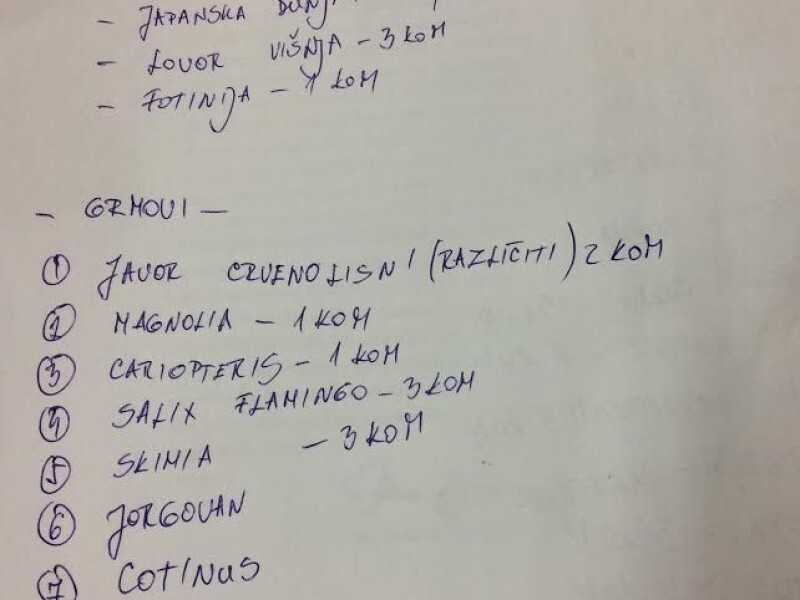 - JAPANSKA DUNJA
- LOVOR VIŠNJA - 3 KOM
- FOTINIJA - 1 KOM
- GRMOVI -
1 JAVOR CRVENOLISNI (RAZLIČITI) 2 KOM
2 MAGNOLIA - 1 KOM
3 CARIOPTERIS - 1 KOM
4 SALIX FLAMINGO - 3 KOM
5 SKIMIA - 3 KOM
6 JORGOVAN
7 COTINUS